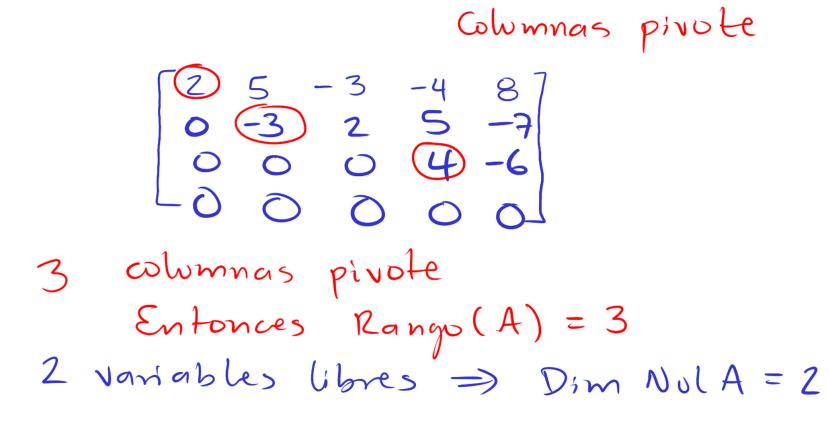 Columnas pivote
2 5 -3 -4 8
0 -3 2 5 -7
0 0 0 4 -6
0 0 0 0 0
3 columnas pivote
Entonces Rango(A) = 3
2 variables libres ⇒ Dim Nul A = 2